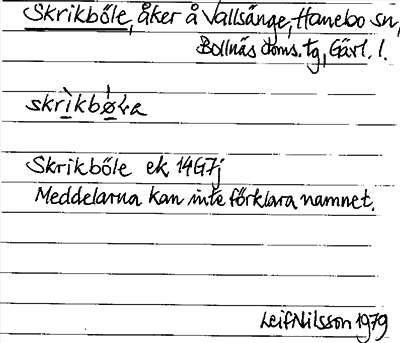 Skrikböle, åker å Vallsänge, Hanebo sn,
Bollnäs doms.tg, Gävl. l.
skrìkbø̀ɫa
Skrikböle ek 14G7j
Meddelarna kan inte förklara namnet.
Leif Nilsson 1979